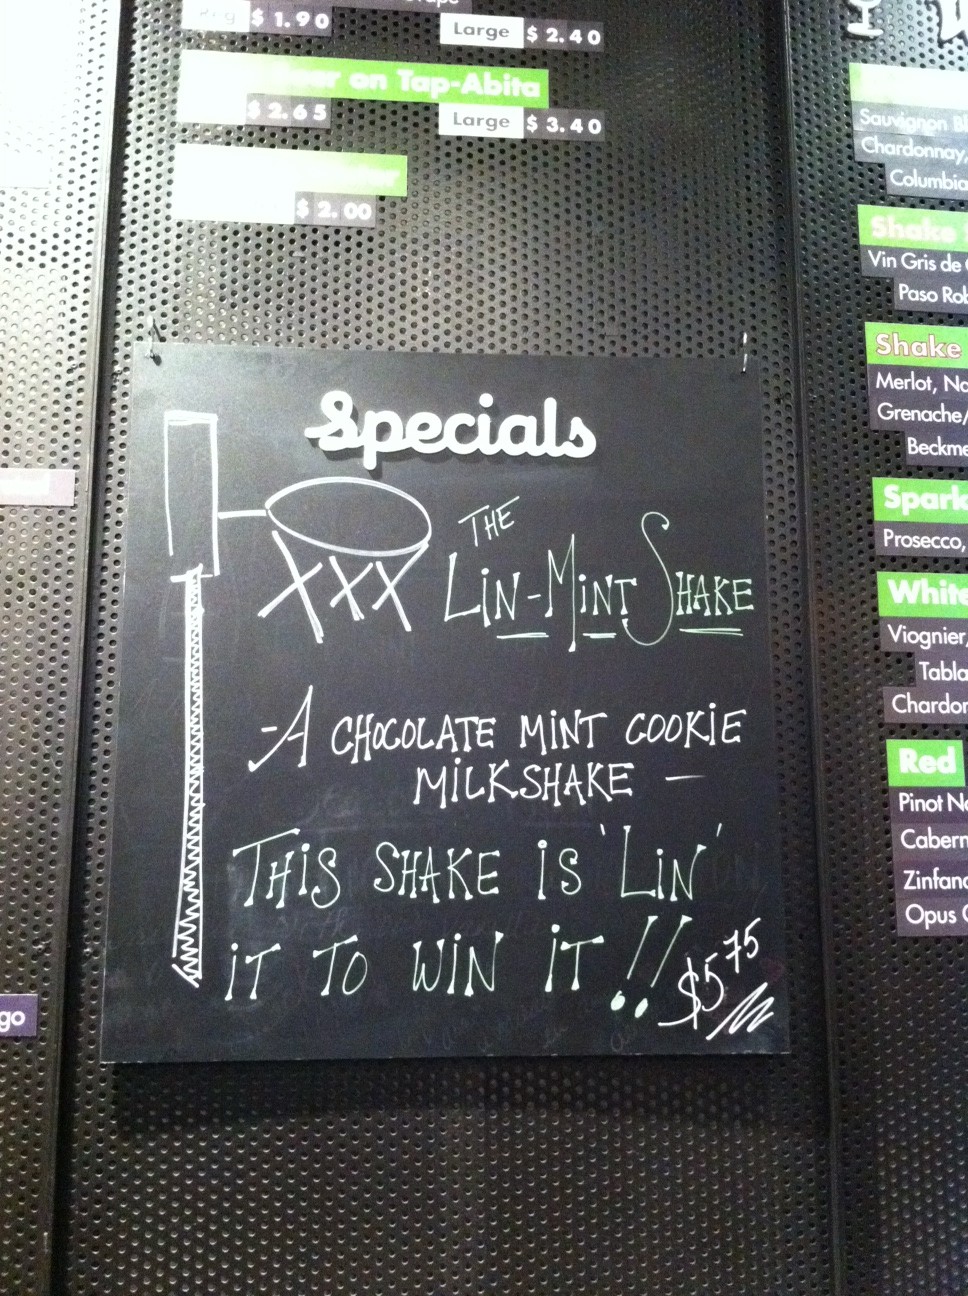 $1.90
Large $2.40
on Tap-Abita
$2.65 Large $3.40
$2.00
Specials
THE
LIN-MINT SHAKE
-A CHOCOLATE MINT COOKIE
MILKSHAKE -
THIS SHAKE IS 'LIN'
IT TO WIN IT!!
$5.75
Sauvignon
Chardonnay,
Columbia
Shake
Vin Gris de
Paso
Shake
Merlot,
Grenache/
Prosecco,
White
Viognier,
Red
Pinot
Opus
go